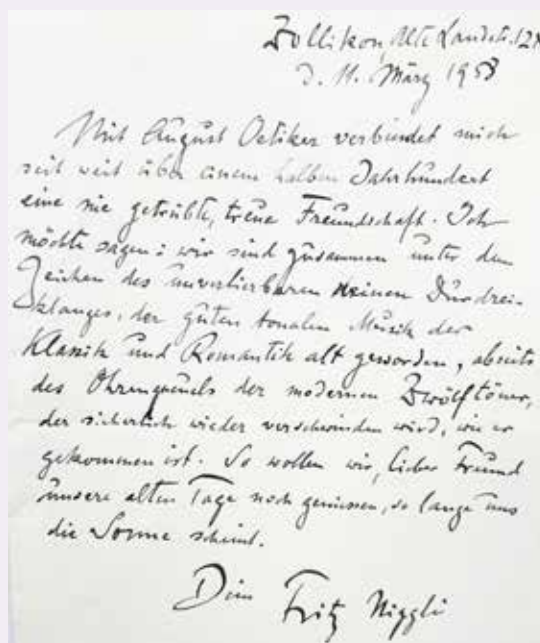 Zollikon, Alte Landstr. 12
d. 11. März 1958
Mit August Oetiker verbindet mich
seit weit über einem halben Jahrhundert
eine nie getrübte, treue Freundschaft. Ich
möchte sagen: wir sind zusammen unter dem
Zeichen des unverlierbaren reinen Durdrei-
klanges, der guten tonalen Musik der
Klassik und Romantik alt geworden, abseits
des Ohrengreuels der modernen Zwölftöner,
der sicherlich wieder verschwinden wird, wie er
gekommen ist. So wollen wir, lieber Freund
unsere alten Tage noch geniessen, so lange uns
die Sonne scheint.
Dein Fritz Niggli